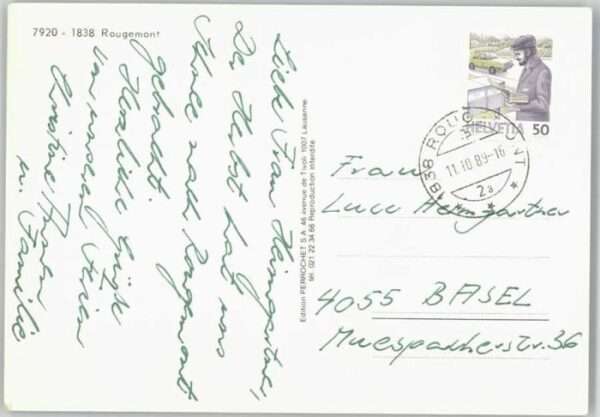 7920 - 1838 Rougemont
Liebe Frau
Der Herbst hat uns
Schnee nach Rougemont
gebracht.
Herzliche Grüsse
von unseren Ferien
u. Familie
Edition PERROCHET S.A. 46 avenue de Tivoli 1007 Lausanne
tél. 021 22 34 66 Reproduction interdite
HELVETIA 50
1838 ROUGEMONT
11.10.89-16
2a
Frau
Luce Heimgartner
4055 BASEL
Muespacherstr. 36